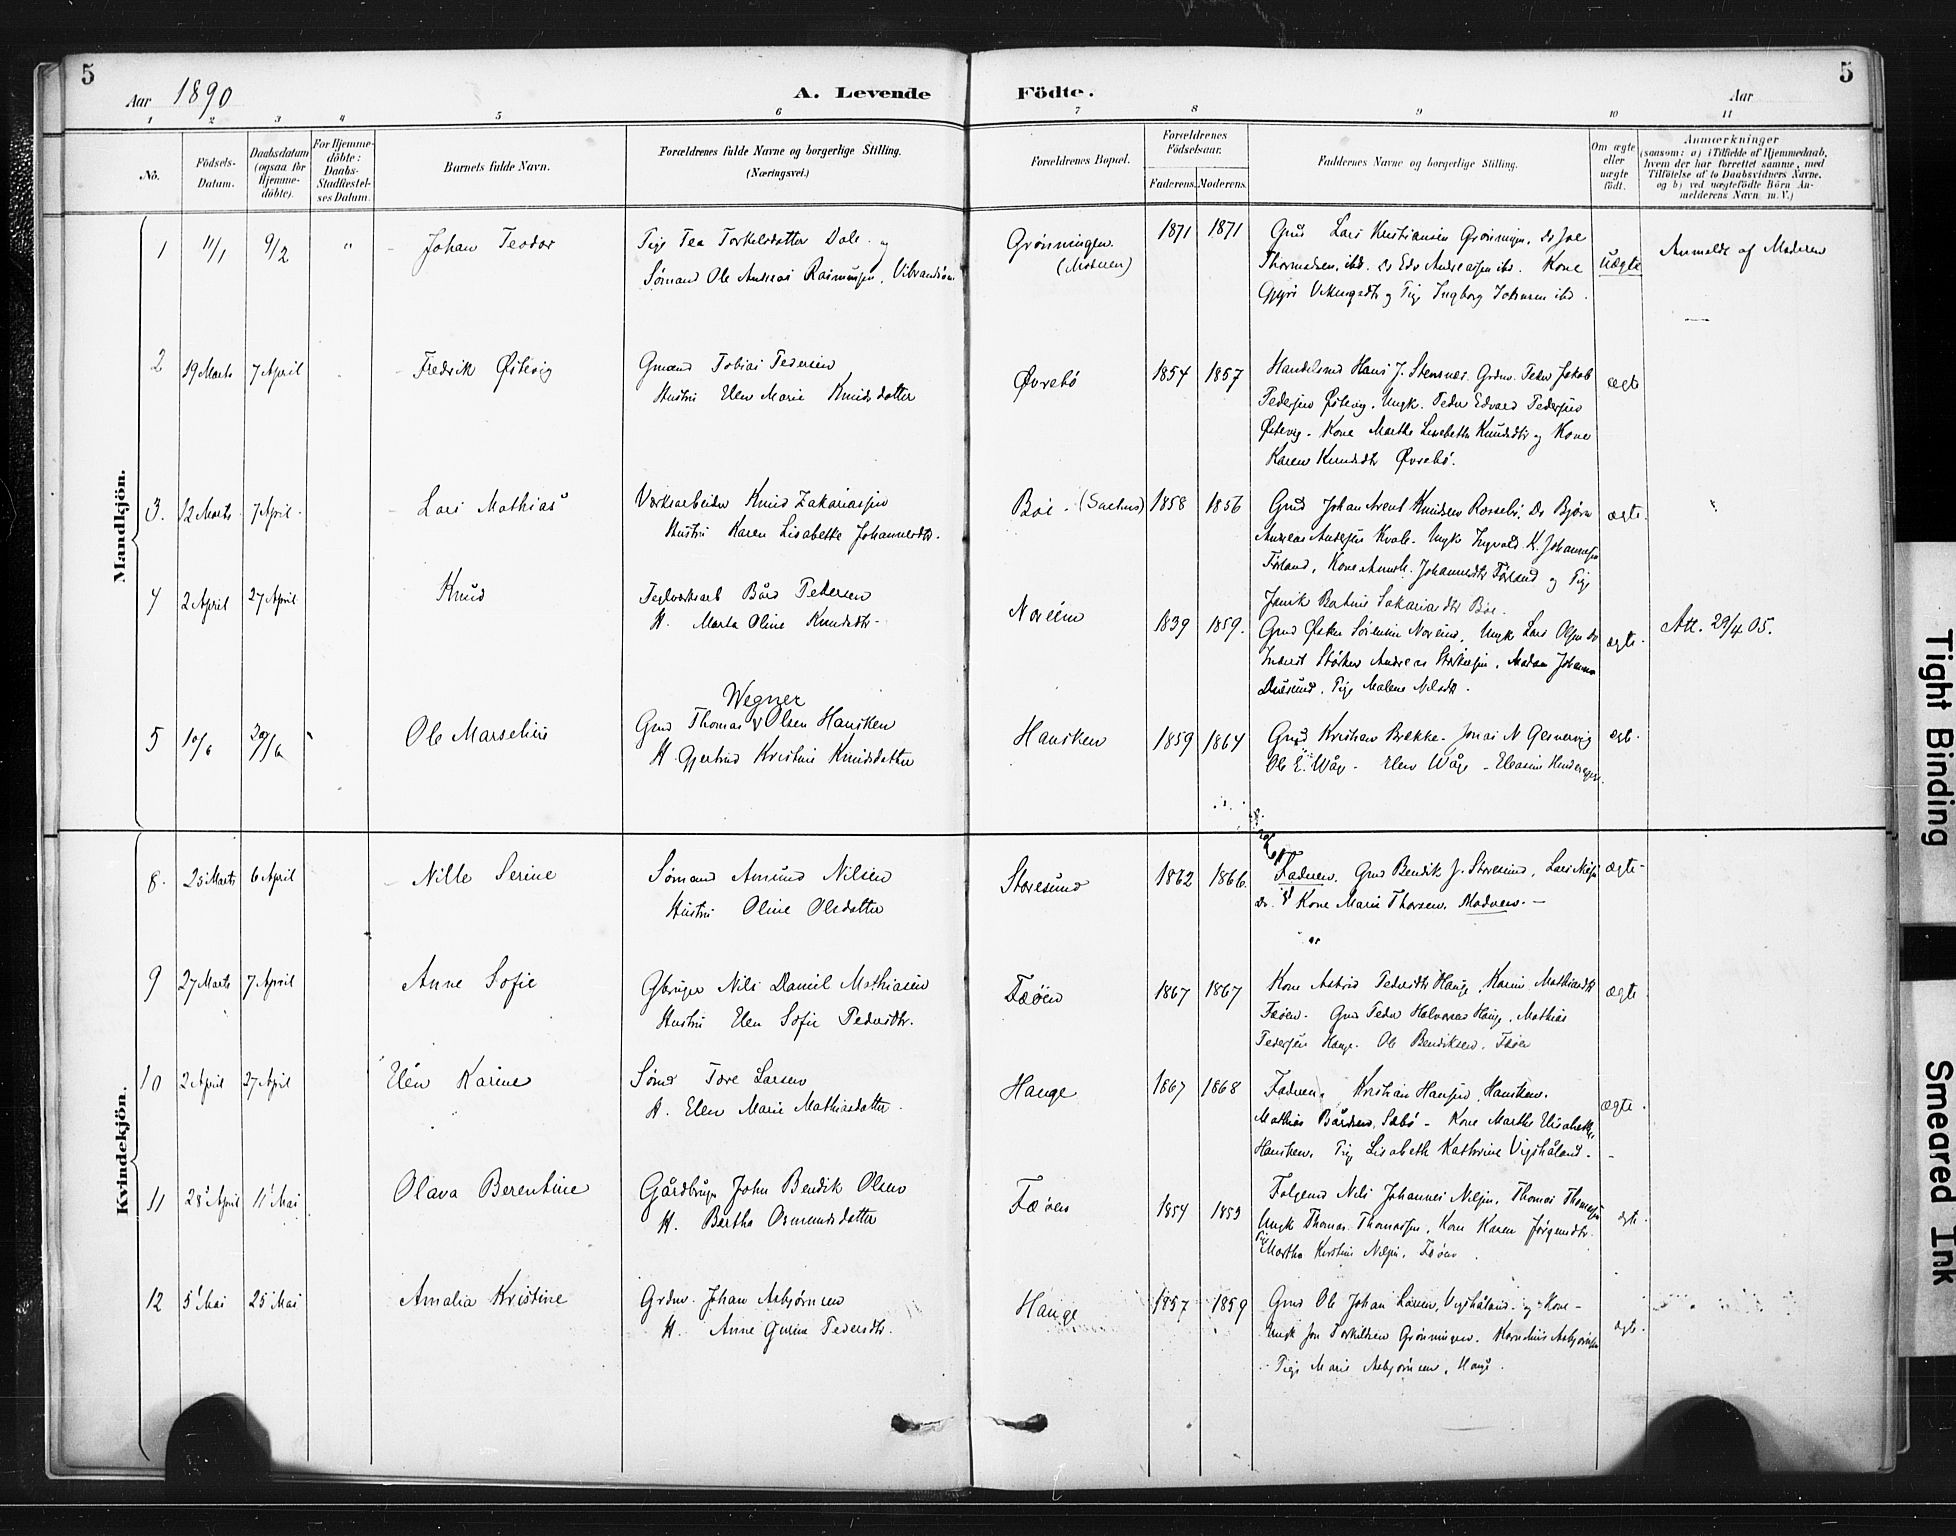 5
Aar 1890
A. Levende
Födte.
Aar
5
1 2 3 4 5 6 7 8 9 10 11
No.
Födsels-Datum.
Daabsdatum (ogsaa for Hjemme-döbte).
For Hjemme-döbte: Daabs-Stadfæstel-ses Datum.
Barnets fulde Navn.
Forældrenes fulde Navne og borgerlige Stilling. (Næringsvei.)
Forældrenes Bopæl.
Forældrenes Födselsaar.
Faderens. Moderens.
Faddernes Navne og borgerlige Stilling.
Om ægte eller uægte födt.
Anmærkninger
(saasom: a) i Tilfælde af Hjemmedaab, hvem der har forrettet samme, med Tilföielse af to Daabsvidners Navne, og b) ved uægtefödte Börn Anmelderens Navn m. V.)
Mandkjön.
1 11/1 9/2 " Johan Teodor
Pige Tea Torkelsdatter Dale og
Sømand Ole Andreas Rasmussen, Vibrandsøen
Grønningen (Moderen)
1871 1871
Gmd Lars Kristiansen Grønningen, Do Joe
Thormodsen, ibd. Do Edv Andreassen ibd. Kone
Gjyri Vikingsdtr og Pige Ingborg Johnsen ibd.
Uægte
Anmeldt af Moderen
2 19 Marts 7 April Fredrik Østevig
Gmand Tobias Pedersen
Hustru Elen Marie Knudsdatter
Øvrebø
1854 1857
Handelsmd Hans J. Stensnes. Grdm. Peder Jakob
Pedersen Østevig, Ungk. Peder Edvard Pedersen
Østevig. Kone Marthe Lisebeth Knudsdtr og Kone
Karen Knudsdtr Øvrebø.
ægte
3. 12 Marts 7 April Lars Mathias
Værksarbeider Knud Zakariassen
Hustru Karen Lisabethe Johannesdtr.
Bøe
1858 1856
Gmd Johan Arent Knudsen Rossebø, Do Bjørn
Andreas Andersen Kvale. Ungk Ingvald K. Johannessen
Førland, Kone Johannesdtr Førland og Pige
Bertine Sakariasdtr Bøe.
ægte.
4 2 April 27 April Knud
Teglværksarb Bård Pedersen
H. Marta Oline Knudsdtr
Noreim
1839 1859.
Gmd Sørensen Noreim, Ungk Lars Olsen do
Størker Andreas Størkersen, Madam Johanna
Pige Malene Nilsdtr.
ægte.
Att. 29/4 05.
5 10/6 29/6 Ole Marselius
Wegner
Gmd Thomas V Olsen Hausken
H. Gjertrud Kristine Knudsdatter
Hausken
1859 1864
Gmd Kristian Brekke. Jonas N Gesnervig
Ole E. Våge. Elen Våge
ægte.
Kvindekjön.
8. 25 Marts 6 April Nille Serine
Sømand Amund Nilsen
Hustru Oline Olsdatter
Storesund
1862 1866.
Faderen. Gmd Bendik J. Storesund, Lars Nilsen
Do. Kone Marie Thorsen. Moderen.
ægte
9 27 Marts 7 April Anne Sofie
Gbruger Nils Daniel Mathiasen
Hustru Elen Sofie Pedersdtr.
Fæøen
1867 1867
Kone Astrid Pedersdtr Hauge, Karin Mathiasdtr
Fæøen. Gmd Peder Halvorsen Hauge, Mathias
Pedersen Hauge. Ole Bendiksen, Fæøen
ægte
10 2 April 27 April Elen Karine
Sømd Tore Larsen
H. Elen Marie Mathiasdatter.
Hauge
1867 1868
Faderen. Kristian Hansen, Hausken.
Mathias Bårdsen, Sæbø. Kone Marthe Elisabeth
Hausken. Pige Lisabeth Kathrine Vigshåland.
ægte.
11 28 April 11 Mai Olava Berentine
Gårdbruger John Bendik Olsen
H. Bertha Osmundsdatter
Fæøen
1854 1853
Nils Johannes Nilsen, Thomas Thomassen
Ungk Thomas Thomassen, Kone Karen Jørgensdtr.
Pige Martha Kirstine Nilsen, Fæøen.
ægte.
12 5 Mai 25 Mai Amalia Kristine
Grdm. Johan Asbjørnsen
H. Anne Gurine Pedersdtr.
Hauge
1857 1859
Gmd Ole Johan Larsen, Vigshåland og Kone
Ungk Jon Torkildsen Grønningen. Kornelius Asbjørnsen
Pige Marie Asbjørnsen, Hauge.
ægte.
Tight Binding
Smeared Ink